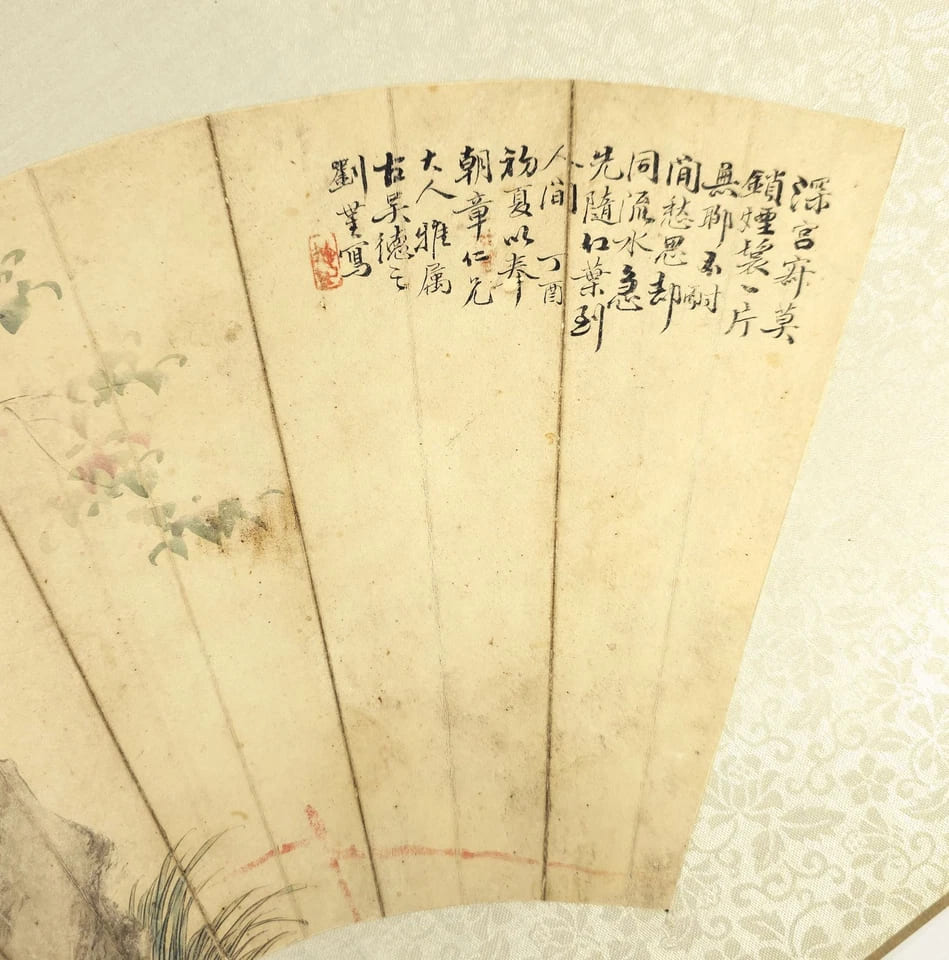 深宮寂莫
鎖煙鬟一片
無聊不耐
閒愁思却
同流水急
先隨红葉到
人間 丁酉
初夏以奉
朝章仁兄
大人雅属
古吴德之
劉 寫